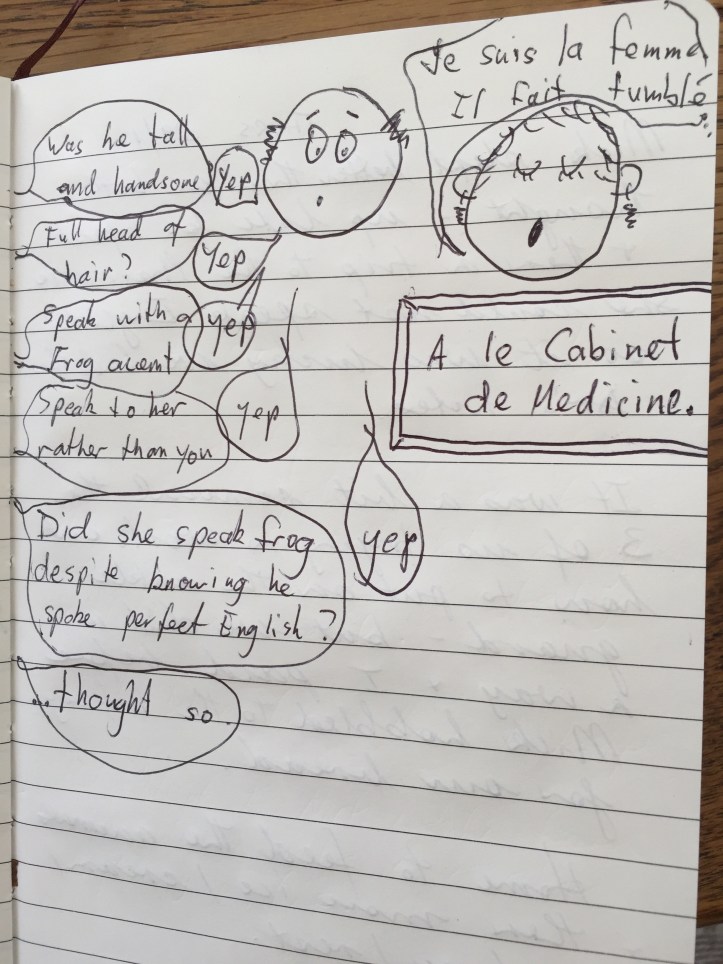 Je suis la femme
Il fait tumblé
Was he tall
and handsome
Yep
Full head of
hair?
Yep
Speak with a
Frog acent
yep
Speak to her
rather than you
yep
A le Cabinet
de Medicine.
Did she speak frog
despite knowing he
spoke perfect English?
yep
...thought so.